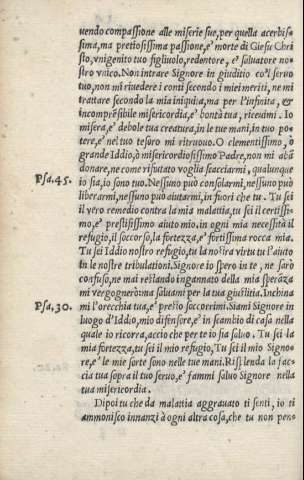 uendo compassione alle miserie sue, per quella acerbis-
sima, ma pretiosissima passione, e' morte di Giesu Chri
sto, vnigenito tuo figliuolo, redentore, e' saluatore no-
stro vnico. Non intrare Signore in giuditio co'l seruo
tuo, non mi riuedere i conti secondo i miei meriti, ne mi
trattare secondo la mia iniquità, ma per l'infinita, &
incomprēsibile misericordia, e' bontà tua, riceuimi. Io
misera, e' debole tua creatura, in le tue mani, in tuo po-
tere, e' nel tuo tesoro mi ritruouo. O clementissimo, ò
grande Iddio, ò misericordiosissimo Padre, non mi abā
donare, ne come rifiutato voglia scacciarmi, qualunque
Psa.45. io sia, io sono tuo. Nessuno può consolarmi, nessuno può
liberarmi, nessuno può aiutarmi, in fuori che tu. Tu sei
il vero remedio contra la mia malattia, tu sei il certissi-
mo, e' prestissimo aiuto mio, in ogni mia necessità il
refugio, il soccorso, la fortezza, e' fortissima rocca mia.
Tu sei Iddio nostro refugio, tu la nostra virtu tu l'aiuto
in le nostre tribulationi. Signore io spero in te, ne sarò
confuso, ne mai restando ingannato della mia speranza
mi vergognerò: ma saluami per la tua giustitia. Inchina
Psa.30. mi l'orecchia tua, e' presto soccorrimi. Siami Signore in
luogo d'Iddio, mio difensore, e' in scambio di casa nella
quale io ricorra, accio che per te io sia saluo. Tu sei la
mia fortezza, tu sei il mio refugio, Tu sei il mio Signo-
re, e' le mie sorte sono nelle tue mani. Risplenda la fac-
cia tua sopra il tuo seruo, e' fammi saluo Signore nella
tua misericordia.
Dipoi tu che da malattia aggrauato ti senti, io ti
ammonisco innanzi à ogni altra cosa, che tu non pen-